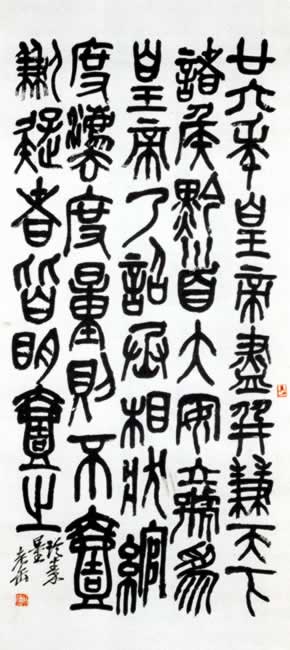 廿六年皇帝盡并兼天下
諸侯黔首大安立號為
皇帝乃詔丞相狀綰
度灋度量則不壹
歉疑者皆明壹之
臨秦
量老缶